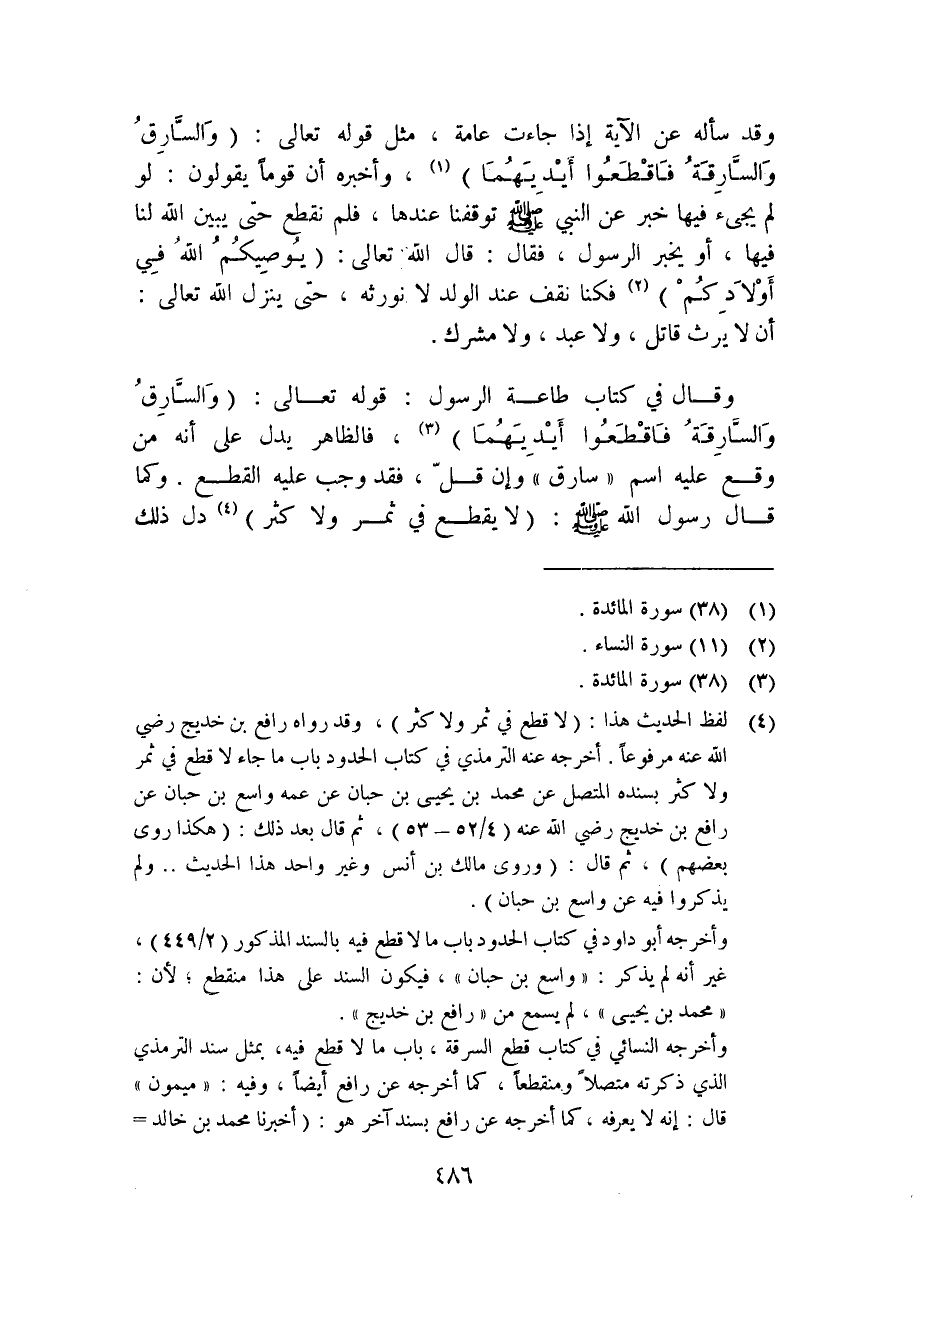 وقد سأله عن الآية إذا جاءت عامة ، مثل قوله تعالى : ( وَالسَّارِقُ
وَالسَّارِقَةُ فَاقْطَعُوا أَيْدِيَهُمَا ) (١) ، وأخبره أن قوماً يقولون : لو
لم يجىء فيها خبر عن النبي ﷺ توقفنا عندها ، فلم نقطع حتى يبين الله لنا
فيها ، أو يخبر الرسول ، فقال : قال الله تعالى : ( يُوصِيكُمُ اللهُ فِي
أَوْلَادِكُمْ ) (٢) فكنا نقف عند الولد لا نورثه ، حتى ينزل الله تعالى :
أن لا يرث قاتل ، ولا عبد ، ولا مشرك .
وقال في كتاب طاعة الرسول : قوله تعالى : ( وَالسَّارِقُ
وَالسَّارِقَةُ فَاقْطَعُوا أَيْدِيَهُمَا ) (٣) ، فالظاهر يدل على أنه من
وقع عليه اسم « سارق » وإن قلّ ، فقد وجب عليه القطع . وكما
قال رسول الله ﷺ : ( لا يقطع في ثمر ولا كثر ) (٤) دل ذلك
(١) (٣٨) سورة المائدة .
(٢) (١١) سورة النساء .
(٣) (٣٨) سورة المائدة .
(٤) لفظ الحديث هذا : ( لا قطع في ثمر ولا كثر ) ، وقد رواه رافع بن خديج رضي
الله عنه مرفوعاً . أخرجه عنه الترمذي في كتاب الحدود باب ما جاء لا قطع في ثمر
ولا كثر بسنده المتصل عن محمد بن يحيى بن حبان عن عمه واسع بن حبان عن
رافع بن خديج رضي الله عنه ( ٥٢/٤ – ٥٣ ) ، ثم قال بعد ذلك : ( هكذا روى
بعضهم ) ، ثم قال : ( وروى مالك بن أنس وغير واحد هذا الحديث .. ولم
يذكروا فيه عن واسع بن حبان ) .
وأخرجه أبو داود في كتاب الحدود باب ما لا قطع فيه بالسند المذكور ( ٤٤٩/٢ ) ،
غير أنه لم يذكر : « واسع بن حبان » ، فيكون السند على هذا منقطع ؛ لأن :
« محمد بن يحيى » ، لم يسمع من « رافع بن خديج » .
وأخرجه النسائي في كتاب قطع السرقة ، باب ما لا قطع فيه، بمثل سند الترمذي
الذي ذكرته متصلاً ومنقطعاً ، كما أخرجه عن رافع أيضاً ، وفيه : « ميمون »
قال : إنه لا يعرفه ، كما أخرجه عن رافع بسند آخر هو : ( أخبرنا محمد بن خالد =
٤٨٦